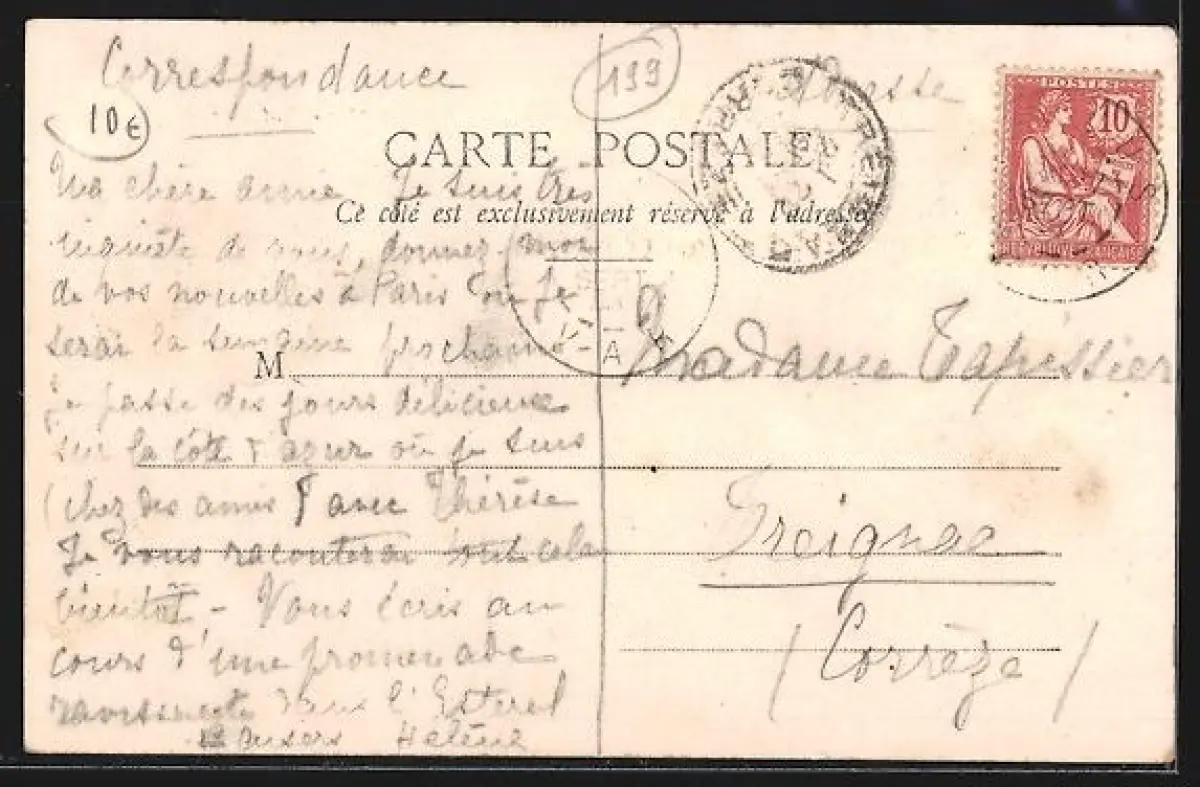 Correspondance
199
Adresse
10€
POSTES
10
CARTE POSTALE
Ce côté est exclusivement réservé à l'adresse
Ma chère amie Je suis très
inquiète de vous, donnez-moi
de vos nouvelles à Paris où Je
serai la semaine prochaine -
je passe des jours délicieux
sur la côte d'azur où je suis
(chez des amis) avec Thérèse
Je vous raconterai tout cela
bientôt - Vous écris au
cours d'une promenade
ravissante dans l'Esterel
Baisers Hélène
M
Madame Tapissier
Treignac
(Corrèze)
A